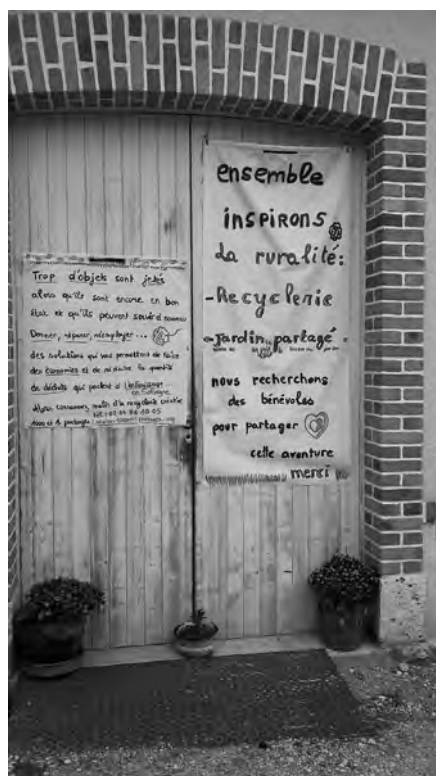 Trop d'objets sont jetés
alors qu'ils sont encore en bon
état et qu'ils peuvent servir à nouveau
Donner, réparer, réemployer...
des solutions qui vous permettent de faire
des économies et de réduire la quantité
de déchets qui partent à l'enfouissement
en Sologne.
Nous
1000 et 1 partages
ensemble
inspirons
la ruralité:
-Recyclerie
-Jardin partagé
nous recherchons
des bénévoles
pour partager
cette aventure
merci